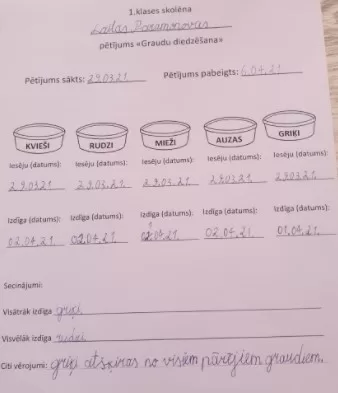 1.klases skolēna
Lailas Paramonovas
pētījums «Graudu diedzēšana»
Pētījums sākts: 29.03.21. Pētījums pabeigts: 6.04.21.
KVIEŠI RUDZI MIEŽI AUZAS GRIĶI
Iesēju (datums): Iesēju (datums): Iesēju (datums): Iesēju (datums): Iesēju (datums):
29.03.21 29.03.21. 29.03.21. 29.03.21. 29.03.21
Izdīga (datums): Izdīga (datums): Izdīga (datums): Izdīga (datums): Izdīga (datums):
02.04.21. 02.04.21. 02.04.21. 02.04.21. 01.04.21.
Secinājumi:
Visātrāk izdīga griķi
Visvēlāk izdīga rudzi
Citi vērojumi: griķi atšķiras no visiem pārējiem graudiem.